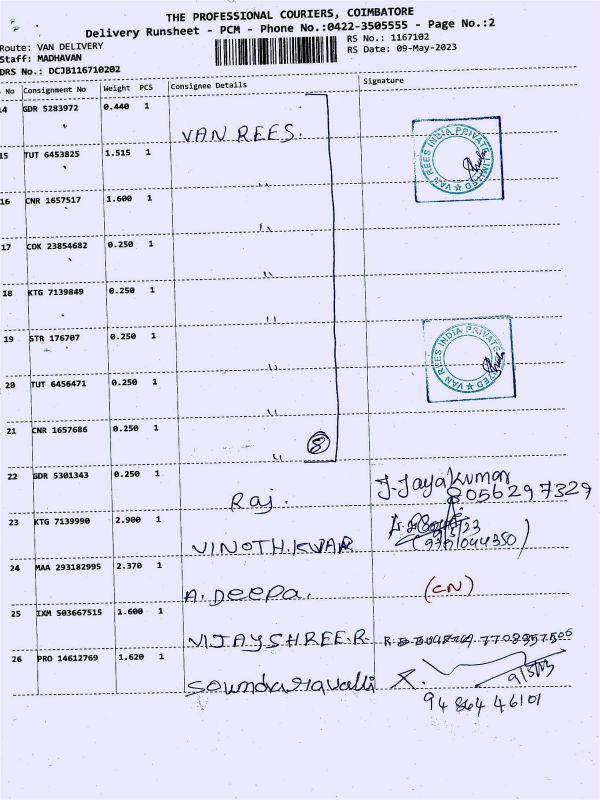 THE PROFESSIONAL COURIERS, COIMBATORE
Delivery Runsheet - PCM - Phone No.:0422-3505555 - Page No.:2
Route: VAN DELIVERY
RS No.: 1167102
Staff: MADHAVAN
RS Date: 09-May-2023
DRS No.: DCJB116710202
No Consignment No Weight PCS Consignee Details Signature
14 GDR 5283972 0.440 1
VAN REES.
VAN REES INDIA PRIVATE LIMITED
15 TUT 6453825 1.515 1
"
16 CNR 1657517 1.600 1
"
17 COK 23854682 0.250 1
"
18 KTG 7139849 0.250 1
"
19 STR 176707 0.250 1
"
VAN REES INDIA PRIVATE LIMITED
20 TUT 6456471 0.250 1
"
21 CNR 1657686 0.250 1
"
8
22 GDR 5301343 0.250 1
Raj.
J.Jayakumar
8056297329
23 KTG 7139990 2.900 1
VINOTH.KUMAR
24 MAA 293182995 2.370 1
A. Deepa.
(CN)
25 IXM 503667515 1.600 1
VIJAYSHREE.R
26 PRO 14612769 1.620 1
Soundaravalli
94864 46101